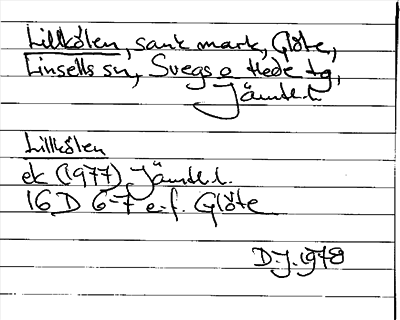 Lillkölen, sank mark, Glöte,
Linsells sn, Svegs o Hede tg,
Jämtl. l.
Lillkölen
ek (1977) Jämtl. l.
16 D 6-7 e-f. Glöte
D.J. 1978